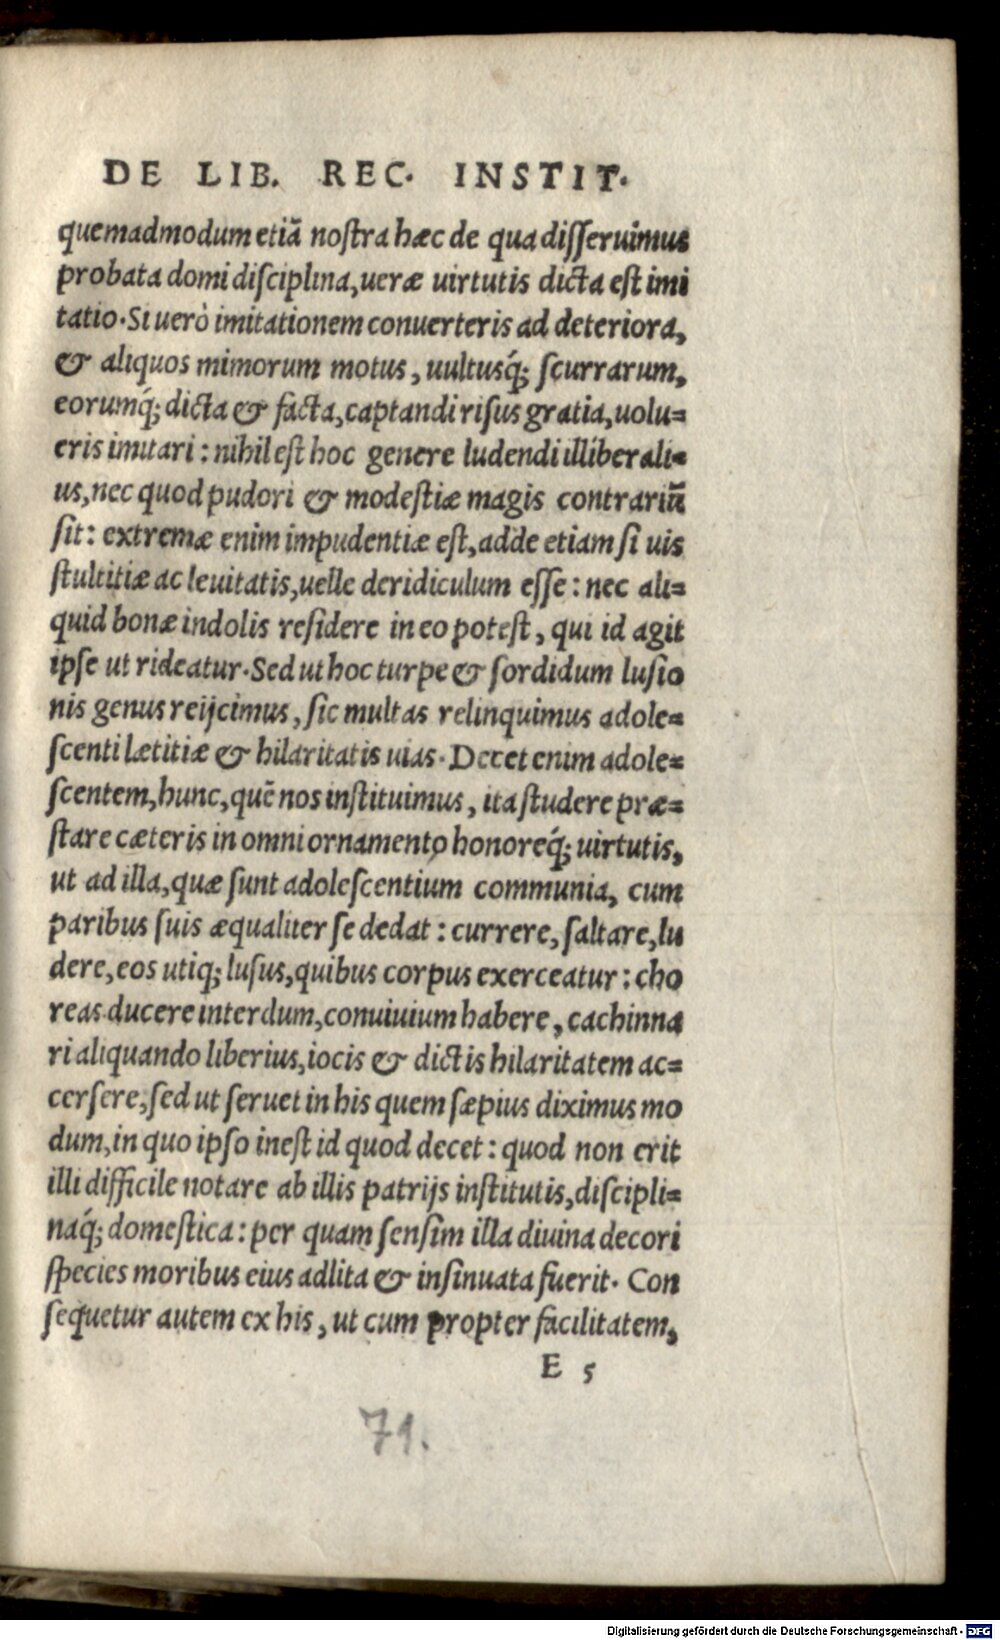 DE LIB. REC. INSTIT.
quemadmodum etiā noſtra hæc de qua diſſeruimus
probata domi diſciplina, ueræ uirtutis dicta eſt imi
tatio. Si uerò imitationem conuerteris ad deteriora,
& aliquos mimorum motus, uultusq́; ſcurrarum,
eorumq́; dicta & facta, captandi riſus gratia, uolu=
eris imitari: nihil eſt hoc genere ludendi illiberali=
us, nec quod pudori & modeſtiæ magis contrariū
ſit: extremæ enim impudentiæ eſt, adde etiam ſi uis
ſtultitiæ ac leuitatis, uelle deridiculum eſſe: nec ali=
quid bonæ indolis reſidere in eo poteſt, qui id agit
ipſe ut rideatur. Sed ut hoc turpe & ſordidum luſio
nis genus reijcimus, ſic multas relinquimus adole=
ſcenti lætitiæ & hilaritatis uias. Decet enim adole=
ſcentem, hunc, quē nos inſtituimus, ita ſtudere præ=
ſtare cæteris in omni ornamento honoreq́; uirtutis,
ut ad illa, quæ ſunt adoleſcentium communia, cum
paribus ſuis æqualiter ſe dedat: currere, ſaltare, lu
dere, eos utiq; luſus, quibus corpus exerceatur: cho
reas ducere interdum, conuiuium habere, cachinna
ri aliquando liberius, iocis & dictis hilaritatem ac=
cerſere, ſed ut ſeruet in his quem ſæpius diximus mo
dum, in quo ipſo ineſt id quod decet: quod non erit
illi difficile notare ab illis patrijs inſtitutis, diſcipli=
naq́; domeſtica: per quam ſenſim illa diuina decori
ſpecies moribus eius adlita & inſinuata fuerit. Con
ſequetur autem ex his, ut cum propter facilitatem,
E 5
71.
Digitalisierung gefördert durch die Deutsche Forschungsgemeinschaft - DFG